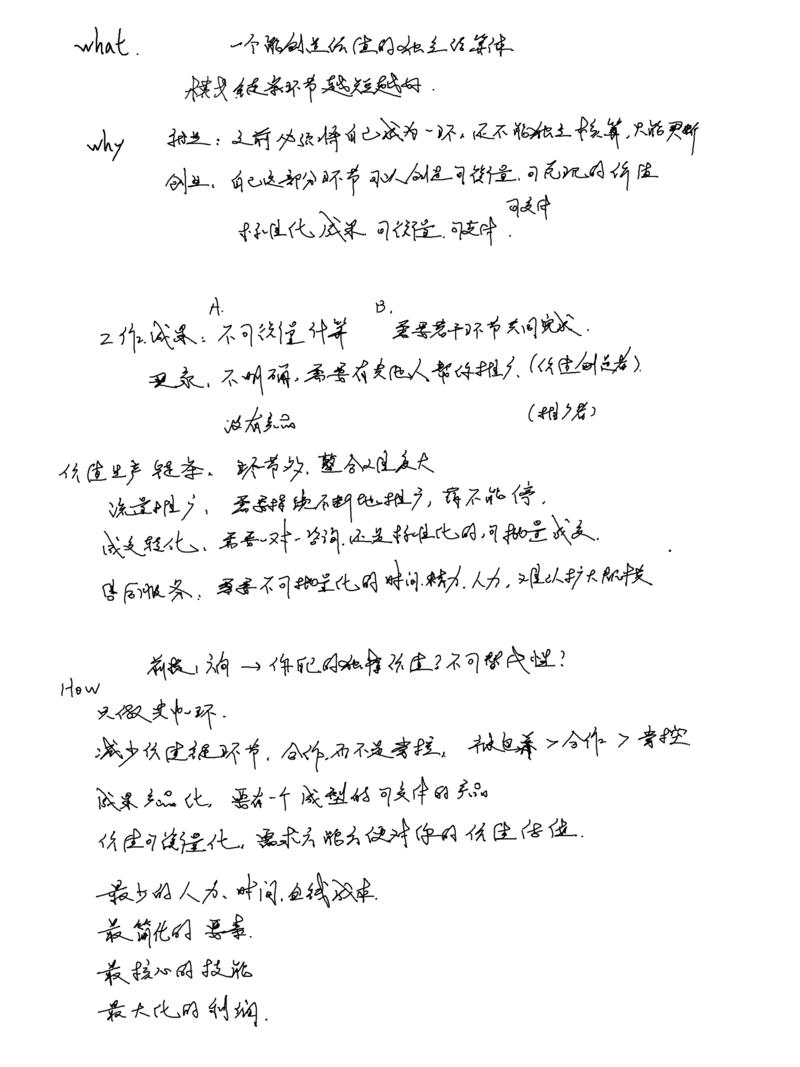 what. 一个能创造价值的独立结算体
模式链条环节越短越好.
why 就业: 之前必须将自己成为一环, 还不能独立核算, 只能更新
创业, 自己这部分环节可以创造可衡量, 可兑现的价值
可交付
标准化成果 可衡量. 可交付.
A. B.
工作成果: 不可衡量计算 需要若干环节共同完成.
现象, 不明确, 需要有其他人帮你推广. (价值创造者)
没有产品 (推广者)
价值生产链条, 环节多, 整合难度大
流量推广, 需要持续不断地推广, 不能停.
成交转化, 需要一对一咨询, 还是标准化的, 可批量成交.
售后服务, 需要不可批量化的时间. 精力. 人力, 难以扩大规模
前提, 方向 → 你的独特价值? 不可替代性?
How
只做其中一环.
减少价值链环节, 合作, 而不是掌控, 被包养 > 合作 > 掌控
成果产品化, 要有一个成型的可交付的产品
价值可衡量化, 需求方能方便对你的价值估值.
最少的人力、时间, 成本.
最简化的要素.
最核心的技能
最大化的利润.